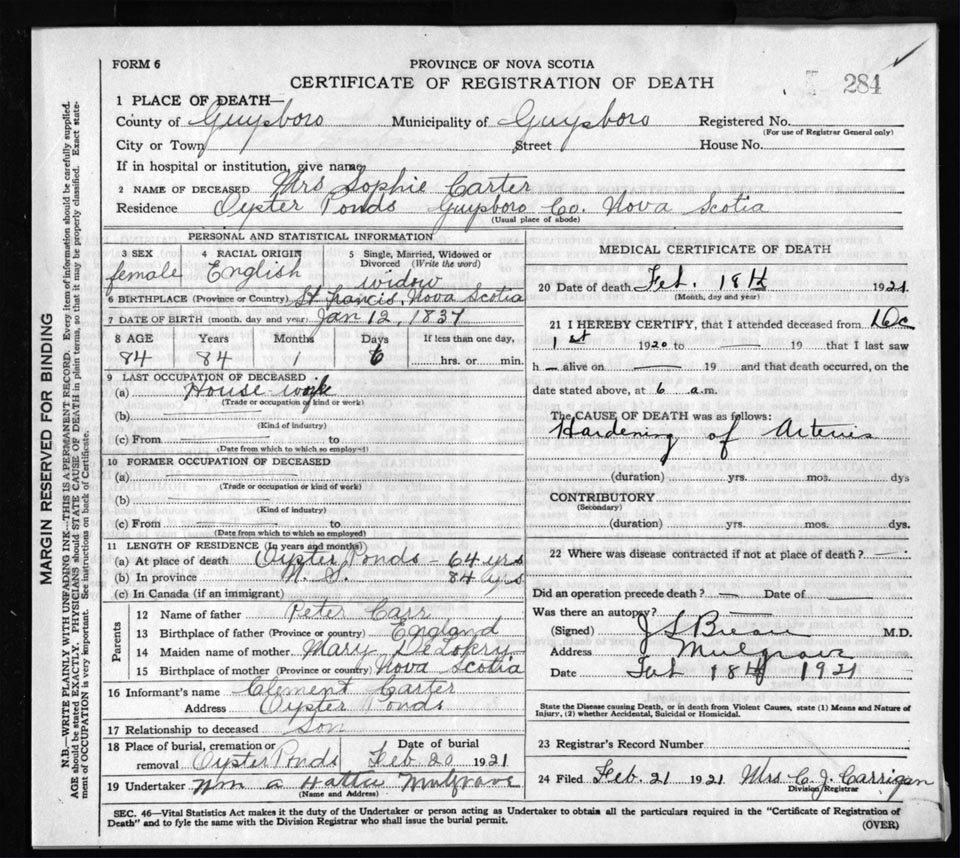 FORM 6
PROVINCE OF NOVA SCOTIA
CERTIFICATE OF REGISTRATION OF DEATH
284
1 PLACE OF DEATH—
County of Guysboro Municipality of Guysboro Registered No.
(For use of Registrar General only)
City or Town Street House No.
If in hospital or institution, give name
2 NAME OF DECEASED Mrs Sophie Carter
Residence Oyster Ponds Guysboro Co. Nova Scotia
(Usual place of abode)
PERSONAL AND STATISTICAL INFORMATION
3 SEX 4 RACIAL ORIGIN 5 Single, Married, Widowed or Divorced (Write the word)
female English widow
6 BIRTHPLACE (Province or Country) St Francis, Nova Scotia
7 DATE OF BIRTH (month, day and year) Jan 12, 1837
8 AGE Years Months Days If less than one day,
84 84 1 6 hrs. or min.
9 LAST OCCUPATION OF DECEASED
(a) House work
(Trade or occupation or kind or work)
(b)
(Kind of industry)
(c) From to
(Date from which to which so employed)
10 FORMER OCCUPATION OF DECEASED
(a)
(Trade or occupation or kind of work)
(b)
(Kind of industry)
(c) From to
(Date from which to which so employed)
11 LENGTH OF RESIDENCE (In years and months)
(a) At place of death Oyster Ponds - 64 yrs
(b) In province N. S. 84 yrs
(c) In Canada (if an immigrant)
Parents
12 Name of father Peter Carr
13 Birthplace of father (Province or country) England
14 Maiden name of mother Mary
15 Birthplace of mother (Province or country) Nova Scotia
16 Informant's name Clement Carter
Address Oyster Ponds
17 Relationship to deceased Son
18 Place of burial, cremation or removal Oyster Ponds Date of burial Feb 20 1921
19 Undertaker Wm a Hattie Mulgrave
(Name and Address)
MEDICAL CERTIFICATE OF DEATH
20 Date of death Feb. 18th 1921
(Month, day and year)
21 I HEREBY CERTIFY, that I attended deceased from Dec
1st 1920 to — 19 that I last saw
h — alive on — 19 and that death occurred, on the
date stated above, at 6 a.m.
The CAUSE OF DEATH was as follows:
Hardening of Arteries
(duration) yrs. mos. dys
CONTRIBUTORY
(Secondary)
(duration) yrs. mos. dys.
22 Where was disease contracted if not at place of death? —
Did an operation precede death? — Date of —
Was there an autopsy? —
(Signed) M.D.
Address Mulgrave
Date Feb 18th 1921
State the Disease causing Death, or in death from Violent Causes, state (1) Means and Nature of
Injury, (2) whether Accidental, Suicidal or Homicidal.
23 Registrar's Record Number
24 Filed Feb. 21 1921 Mrs. C. J. Carrigan
Division Registrar
SEC. 46—Vital Statistics Act makes it the duty of the Undertaker or person acting as Undertaker to obtain all the particulars required in the "Certificate of Registration of
Death" and to fyle the same with the Division Registrar who shall issue the burial permit.
(OVER)
MARGIN RESERVED FOR BINDING
N.B.—WRITE PLAINLY WITH UNFADING INK—THIS IS A PERMANENT RECORD. Every item of information should be carefully supplied.
AGE should be stated EXACTLY. PHYSICIANS should STATE CAUSE OF DEATH in plain terms, so that it may be properly classified. Exact statement of OCCUPATION is very important. See instructions on back of Certificate.